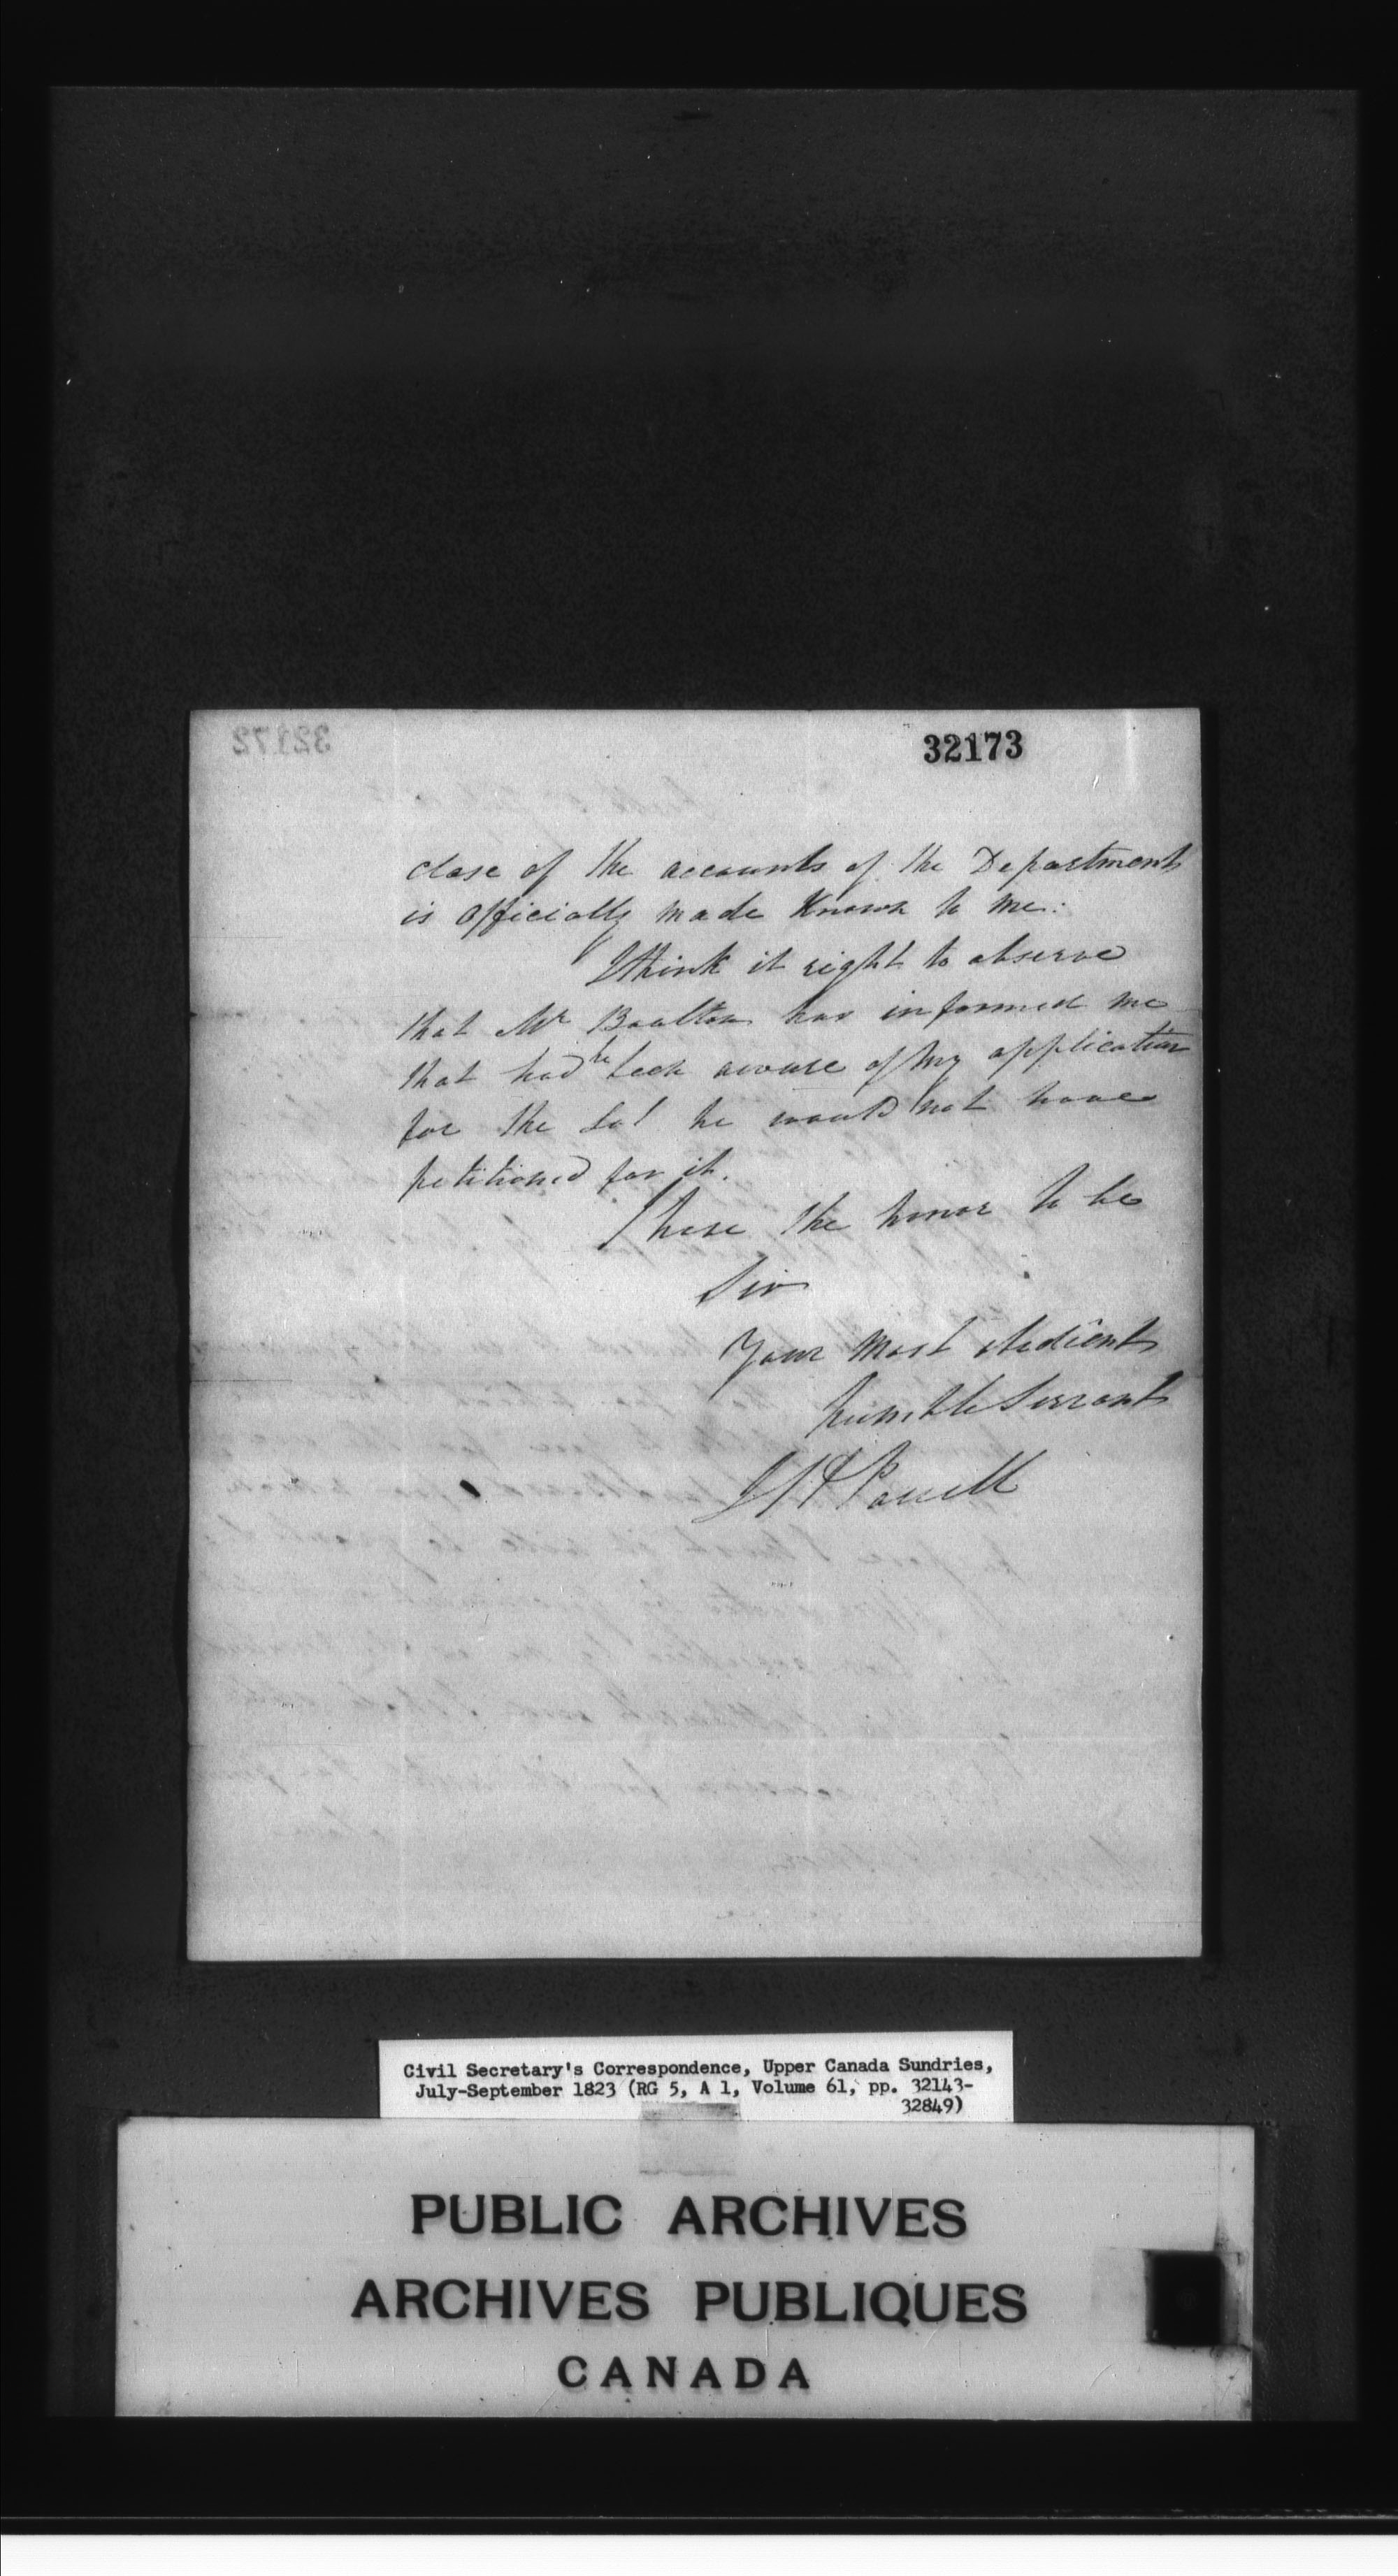 32173
close of the accounts of the Department
is officially made Known to me.
I think it right to observe
that Mr Boulton has informed me
that had he been aware of my application
for the Lot he would not have
petitioned for it.
I have the honor to be
Sir
Your most obedient
humble Servant
Powell
Civil Secretary's Correspondence, Upper Canada Sundries,
July-September 1823 (RG 5, A 1, Volume 61, pp. 32143-
32849)
PUBLIC ARCHIVES
ARCHIVES PUBLIQUES
CANADA